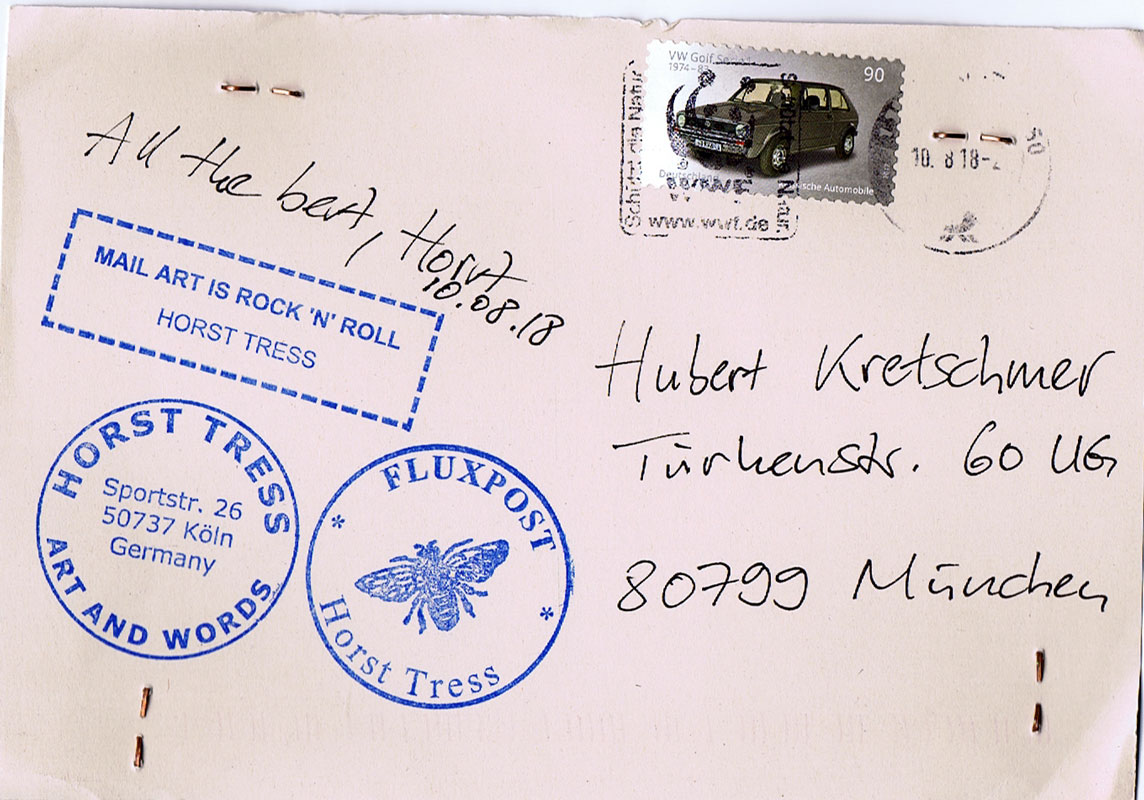 All the best, Horst
10.08.18
MAIL ART IS ROCK 'N' ROLL
HORST TRESS
HORST TRESS
Sportstr. 26
50737 Köln
Germany
ART AND WORDS
FLUXPOST
Horst Tress
VW Golf
1974-83
90
Deutschland
sche Automobile
Schützt die Natur
www.wwf.de
Natur
10. 8 18-
50
Hubert Kretschmer
Türkenstr. 60 UG
80799 München